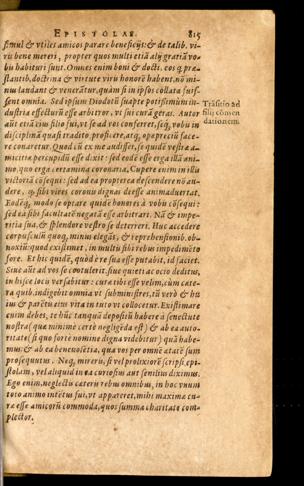 EPISTOLAE. 815
simul & vtiles amicos parare beneficijs: & de talib. vi-
ris bene mereri, propter quos multi etiā alij gratiā vo-
bis habituri sunt. Omnes enim boni & docti. eos q præ-
stantib. doctrina & virtute viris honorē habent. nō mi-
nus laudant & venerātur. quàm si in ipsos collata fuis-
sent omnia. Sed ipsum Diodotū suapte potißimùm in-
dustria effecturū esse arbitror, vt sui curā geras. Autor
aūt etiā eius filio fui, vt se ad vos conferret, seq́; vobis in
disciplinā quasi tradito, proficere, atq; operæpreciū face-
re conaretur. Quod cū ex me audisset, is quidē vestrā a-
micitiā percupidū esse dixit: sed eodē esse erga illā ani-
mo, quo erga certamina coronaria. Cupere enim in illis
victoriā cōsequi: sed ad ea propterea descendere nō au-
dere, q sibi vires coronis dignas deesse animaduertat.
Eodēq; modo se optare quidē honores à vobis cōsequi:
sed ea sibi facultatē negatā esse arbitrari. Nā & impe-
ritia sua, & splendore vestro se deterreri. Huc accedere
corpusculū quoq; minus elegās, & reprehensionib. ob-
noxiū: quod existimet, in multis sibi rebus impedimēto
fore. Et hic quidē, quod è re sua esse putabit, id faciet.
Siue aūt ad vos se cōtulerit, siue quieti ac ocio deditus,
in hisce locis versabitur: curæ tibi esse velim, cùm cæte-
ra quib. indigebit omnia vt subministres, tū verò & hu
ius & parētū eius vita in tuto vt collocetur. Existimare
enim debes, te hūc tanquā depositū habere à senectute
nostra (quæ minimè certè negligēda est) & ab ea auto-
ritate (si quo fortè nomine digna videbitur) quā habe-
mus: & ab ea beneuolētia, qua vos per omnē ætatē sum
prosequutus. Neq; mireris, si vel prolixiorē scripsi epi-
stolam, vel aliquid in ea curiosius aut senilius diximus.
Ego enim, neglectis cæteris rebus omnibus, in hoc vnum
toto animo intētus fui, vt appareret, mihi maximæ cu-
ræ esse amicorū commoda, quos summa charitate com-
plector.
Trāsitio ad
filij cōmen
dationem.